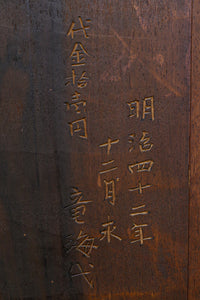 明治四十二年
十二月求
代金拾壱円
竜海代